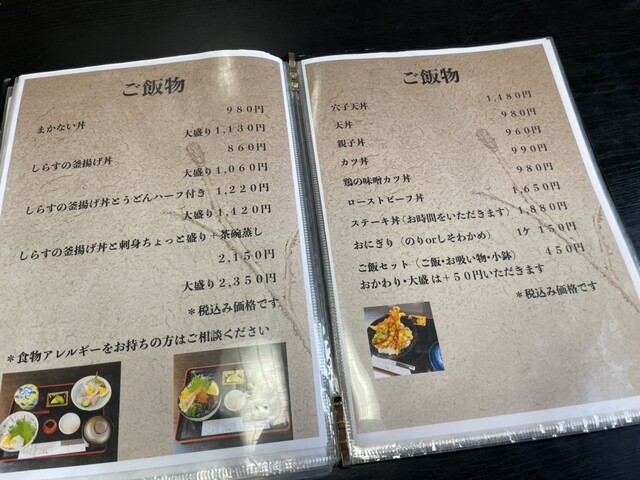 ご飯物
９８０円
まかない丼
大盛り１,１３０円
８６０円
しらすの釜揚げ丼
大盛り１,０６０円
しらすの釜揚げ丼とうどんハーフ付き １,２２０円
大盛り１,４２０円
しらすの釜揚げ丼と刺身ちょっと盛り＋茶碗蒸し
２,１５０円
大盛り２,３５０円
＊税込み価格です
＊食物アレルギーをお持ちの方はご相談ください
ご飯物
穴子天丼 １,４８０円
天丼 ９８０円
親子丼 ９６０円
カツ丼 ９９０円
鶏の味噌カツ丼 ９８０円
ローストビーフ丼 １,６５０円
ステーキ丼（お時間をいただきます） １,８８０円
おにぎり（のりorしそわかめ） １ケ １５０円
ご飯セット（ご飯・お吸い物・小鉢） ４５０円
おかわり・大盛は＋５０円いただきます
＊税込み価格です